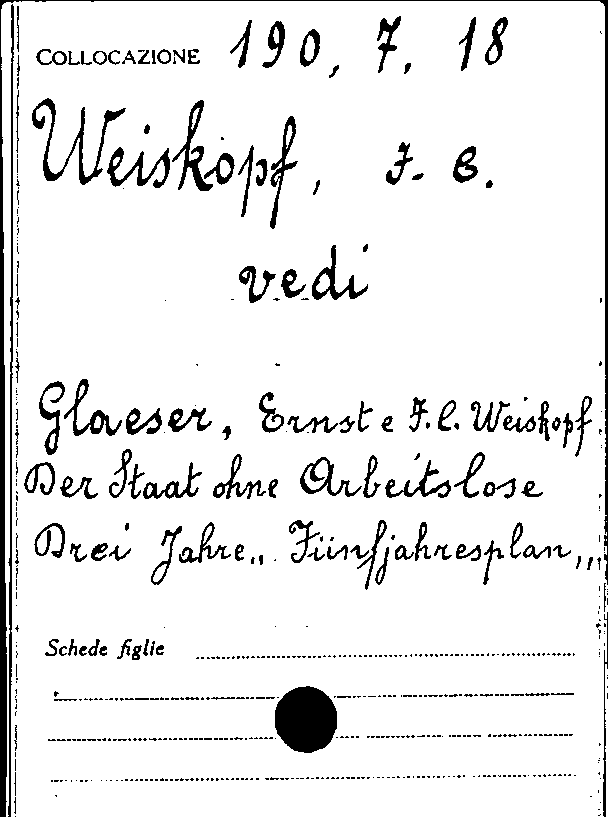 COLLOCAZIONE 190, 7, 18
Weiskopf, F. C.
vedi
Glaeser, Ernst e F. C. Weiskopf.
Der Staat ohne Arbeitslose
Drei Jahre „ Fünfjahresplan „
Schede figlie